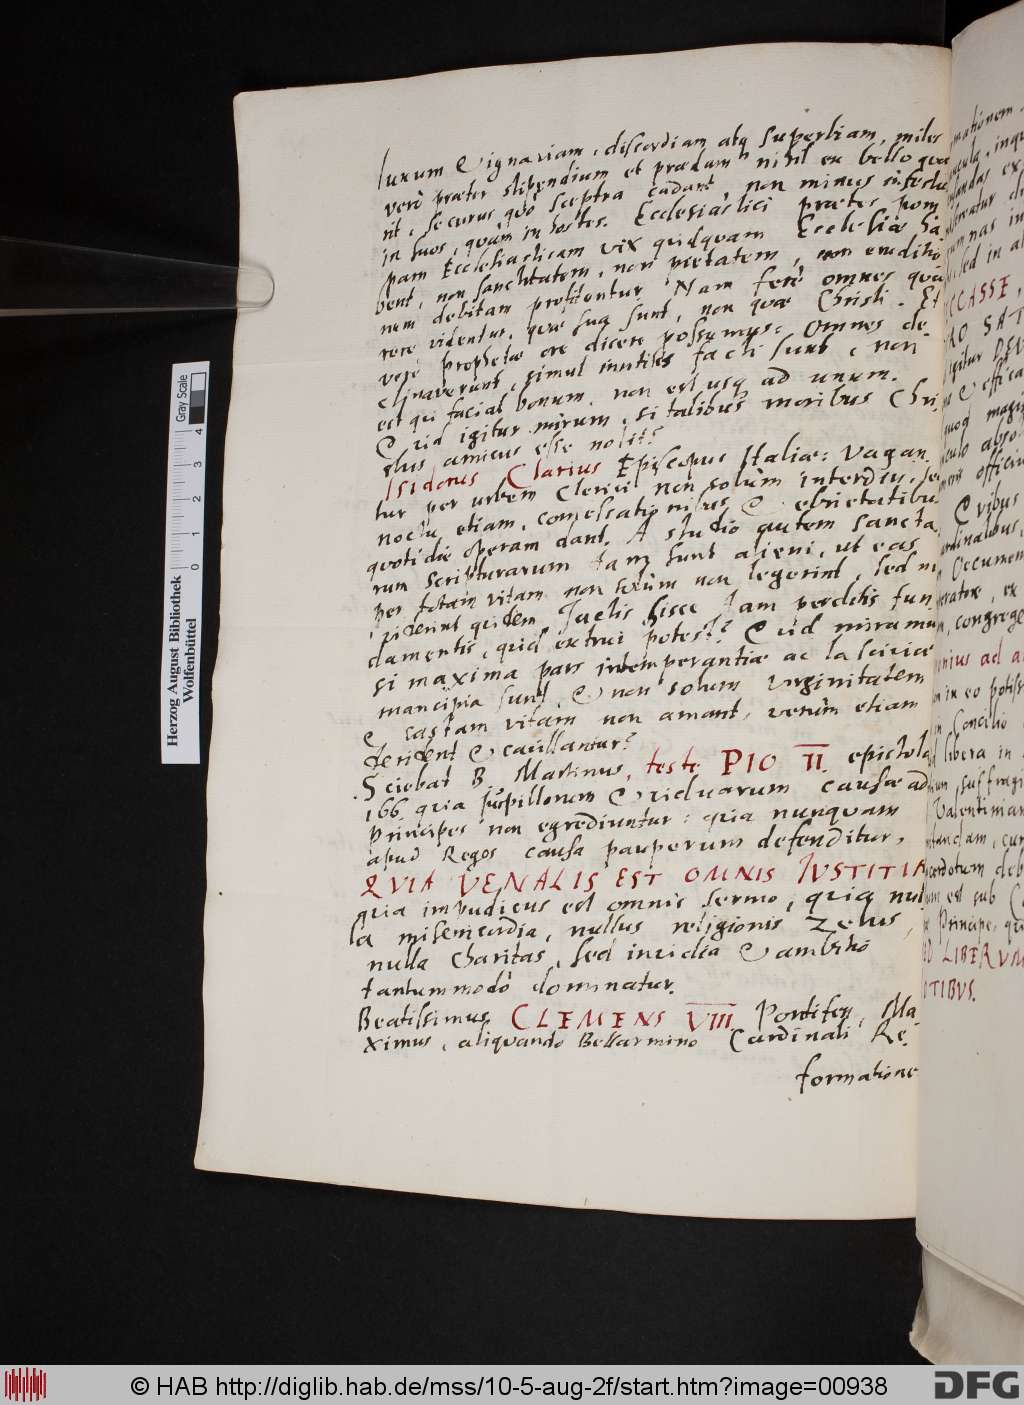 luxum & ignaviam, discordiam atq superbiam, miles
verò præter stipendium et prædam nihil ex bello quæ
rit, securus quò sceptra cadant, non minus infestus
in suos, quàm in hostes. Ecclesiastici præter pom
pam Ecclesiasticam vix quidquam Ecclesiæ ha
bent, non sanctitatem, non pietatem, non eruditio
nem debitam profitentur. Nam ferè omnes quæ
rere videntur, quæ sua sunt, non quæ Christi. Et
verè prophetæ ore dicere possumus: Omnes de-
clinaverunt, simul inutiles facti sunt, non
est qui faciat bonum, non est usq ad unum.
Quid igitur mirum, si talibus moribus Chri
stus amicus esse nolit?
Isidorus Clarius Episcopus Italiæ: Vagan
tur per urbem Clerici non solùm interdiu, sed
noctu etiam, comessationibus & ebrietatibus
quotidie operam dant. A studio autem sancta
rum scripturarum tam sunt alieni, ut eas
per totam vitam non solùm non legerint, sed ni
viderint quidem. Jactis hisce tam perditis fun
damentis, quid extrui potest? Quid mirum
si maxima pars intemperantiæ ac lasciviæ
mancipia sunt, & non solum virginitatem
& castam vitam non amant, verùm etiam
derident & cavillantur?
Sciebat B. Martinus, teste PIO II. epistola
166. quia pupillorum & viduarum causæ ad
Principes non egrediuntur: quia nunquam
apud Reges causa pauperum defenditur,
QVIA VENALIS EST OMNIS JVSTITIA
quia impudicus est omnis sermo, quia nul
la misericordia, nullus religionis zelus,
nulla charitas, sed invidia & ambitio
tantummodò dominatur.
Beatissimus CLEMENS VIII. Pontifex Ma
ximus, aliquando Bellarmino Cardinali Re-
formatione
Herzog August Bibliothek
Wolfenbüttel
0 1 2 3 4
Gray Scale
© HAB http://diglib.hab.de/mss/10-5-aug-2f/start.htm?image=00938
DFG